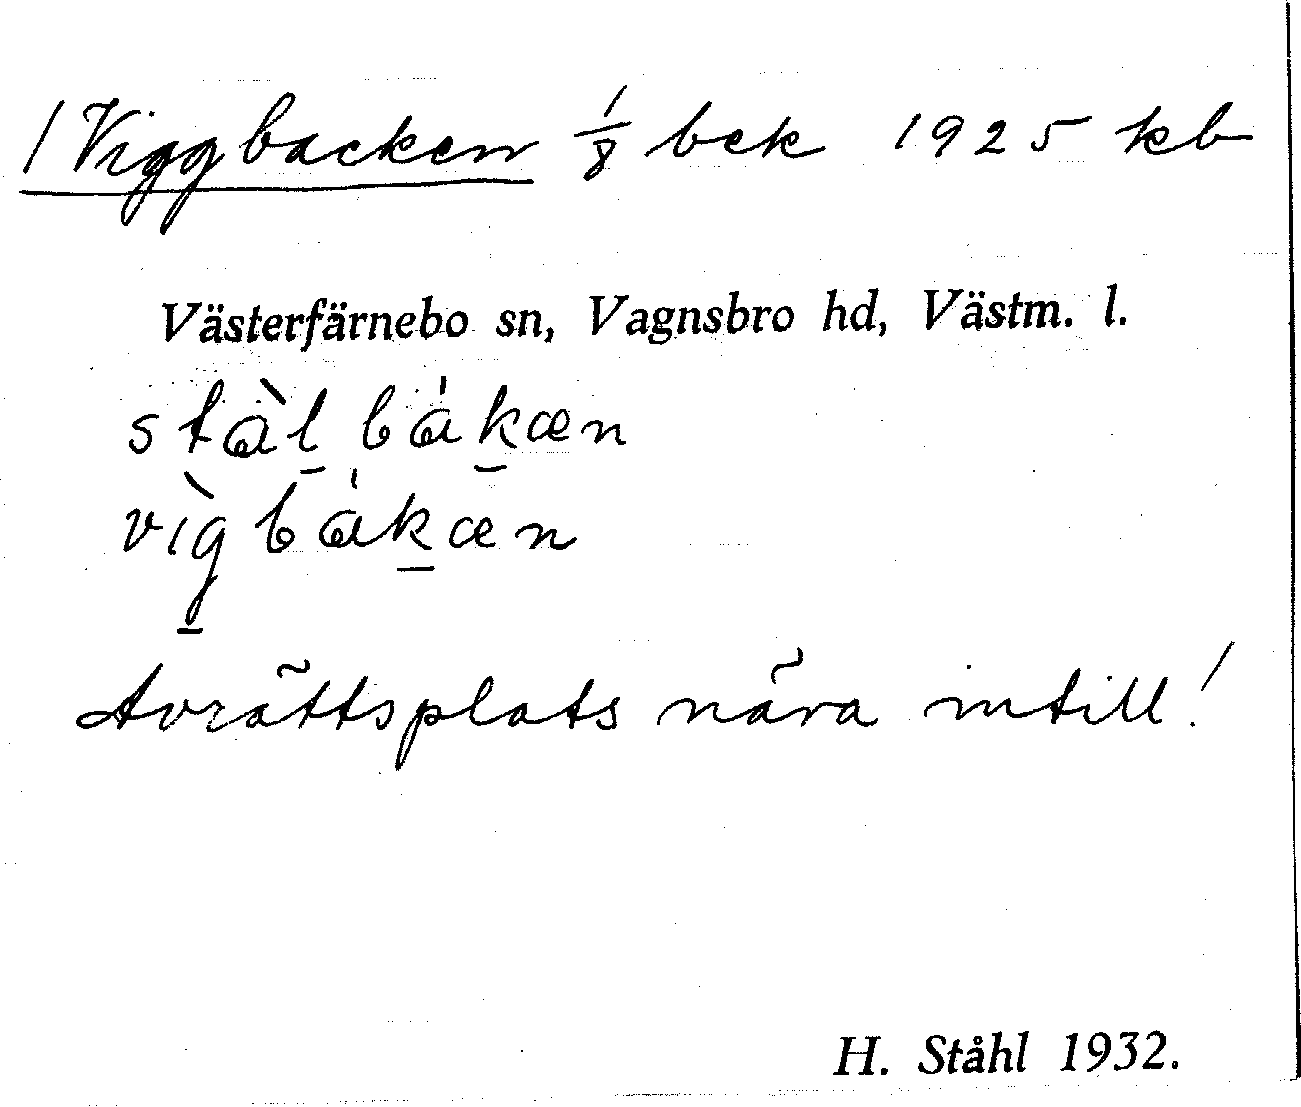 /Viggbacken 1/8 bek 1925 kb
Västerfärnebo sn, Vagnsbro hd, Västm. l.
stàl bákæn
vìgbákæn
Avrättsplats nära intill!
H. Ståhl 1932.